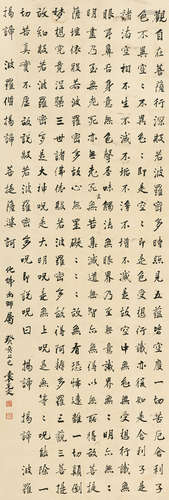 觀自在菩薩行深般若波羅蜜多時照見五蘊皆空度一切苦厄舍利子
色不異空々不異色々即是空々即是色受想行識亦復如是舍利子是
諸法空相不生不滅不垢不淨不增不減是故空中無色無受想行識無
眼耳鼻舌身意無色聲香味觸法無眼界乃至無意識界無無明亦無無
明盡乃至無老死亦無老死盡無苦集滅道無智亦無得以無所得故菩提
薩埵依般若波羅蜜多故心無罣礙無罣礙故無有恐怖遠離一切顛倒
夢想究竟涅槃三世諸佛依般若波羅蜜多故得阿耨多羅三藐三菩提
故知般若波羅蜜多是大神咒是大明咒是無上咒是無等々咒能除一
切苦真實不虛故說般若波羅蜜多咒即說咒曰 揭諦 揭諦 波羅
揭諦 波羅僧揭諦 菩提薩婆訶